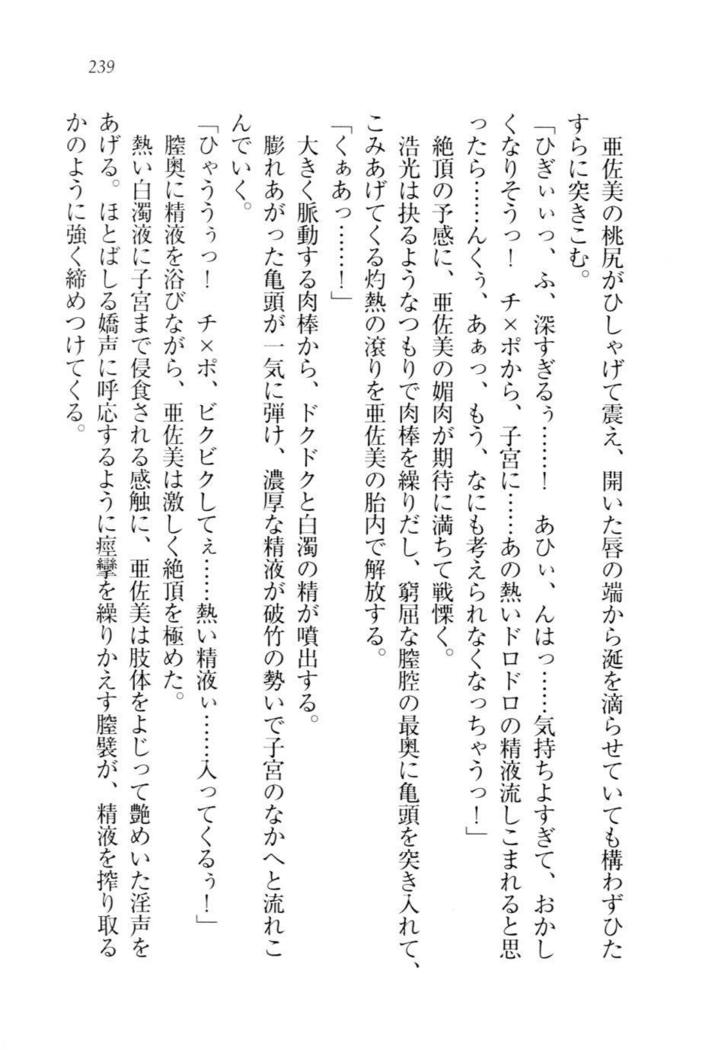 239
亜佐美の桃尻がひしゃげて震え、開いた唇の端から涎を滴らせていても構わずひた
すらに突きこむ。
「ひぎぃぃっ、ふ、深すぎるぅ……！　あひぃ、んはっ……気持ちよすぎて、おかし
くなりそうっ！　チ×ポから、子宮に……あの熱いドロドロの精液流しこまれると思
ったら……んくぅ、あぁっ、もう、なにも考えられなくなっちゃうっ！」
絶頂の予感に、亜佐美の媚肉が期待に満ちて戦慄く。
浩光は抉るようなつもりで肉棒を繰りだし、窮屈な膣腔の最奥に亀頭を突き入れて、
こみあげてくる灼熱の滾りを亜佐美の胎内で解放する。
「くぁあっ……！」
大きく脈動する肉棒から、ドクドクと白濁の精が噴出する。
膨れあがった亀頭が一気に弾け、濃厚な精液が破竹の勢いで子宮のなかへと流れこ
んでいく。
「ひゃううぅっ！　チ×ポ、ビクビクしてぇ……熱い精液ぃ……入ってくるぅ！」
膣奥に精液を浴びながら、亜佐美は激しく絶頂を極めた。
熱い白濁液に子宮まで侵食される感触に、亜佐美は肢体をよじって艶めいた淫声を
あげる。ほとばしる嬌声に呼応するように痙攣を繰りかえす膣襞が、精液を搾り取る
かのように強く締めつけてくる。